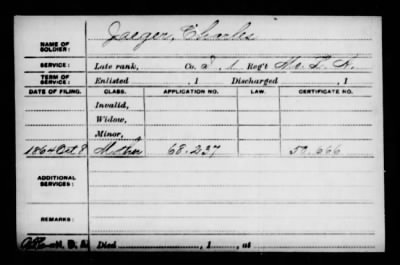 NAME OF SOLDIER: Jaeger, Charles
SERVICE: Late rank, Co. I, 1 Reg't Mo. L. A.
TERM OF SERVICE: Enlisted , 1 Discharged , 1
DATE OF FILING. CLASS. APPLICATION NO. LAW. CERTIFICATE NO.
Invalid,
Widow,
Minor,
1864 Oct 8 Mother 68.237 50.666
ADDITIONAL SERVICES:
REMARKS:
Died , 1 , at